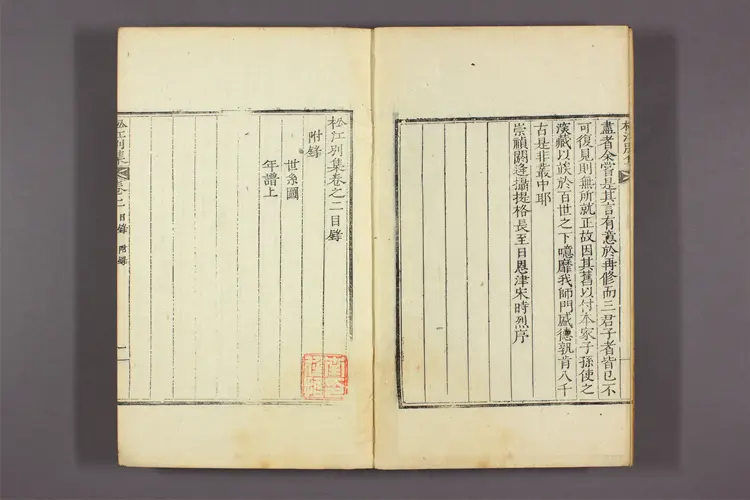 盡者余嘗是其言有意於再修而三君子者皆已不
可復見則無所就正故因其舊以付本家子孫使之
深藏以竢於百世之下噫靡我師門盛德孰肯入千
古是非叢中耶
崇禎閼逢攝提格長至日恩津宋時烈序
松江別集卷之二目錄
附錄
世系圖
年譜上
松江別集
目錄
附錄
一